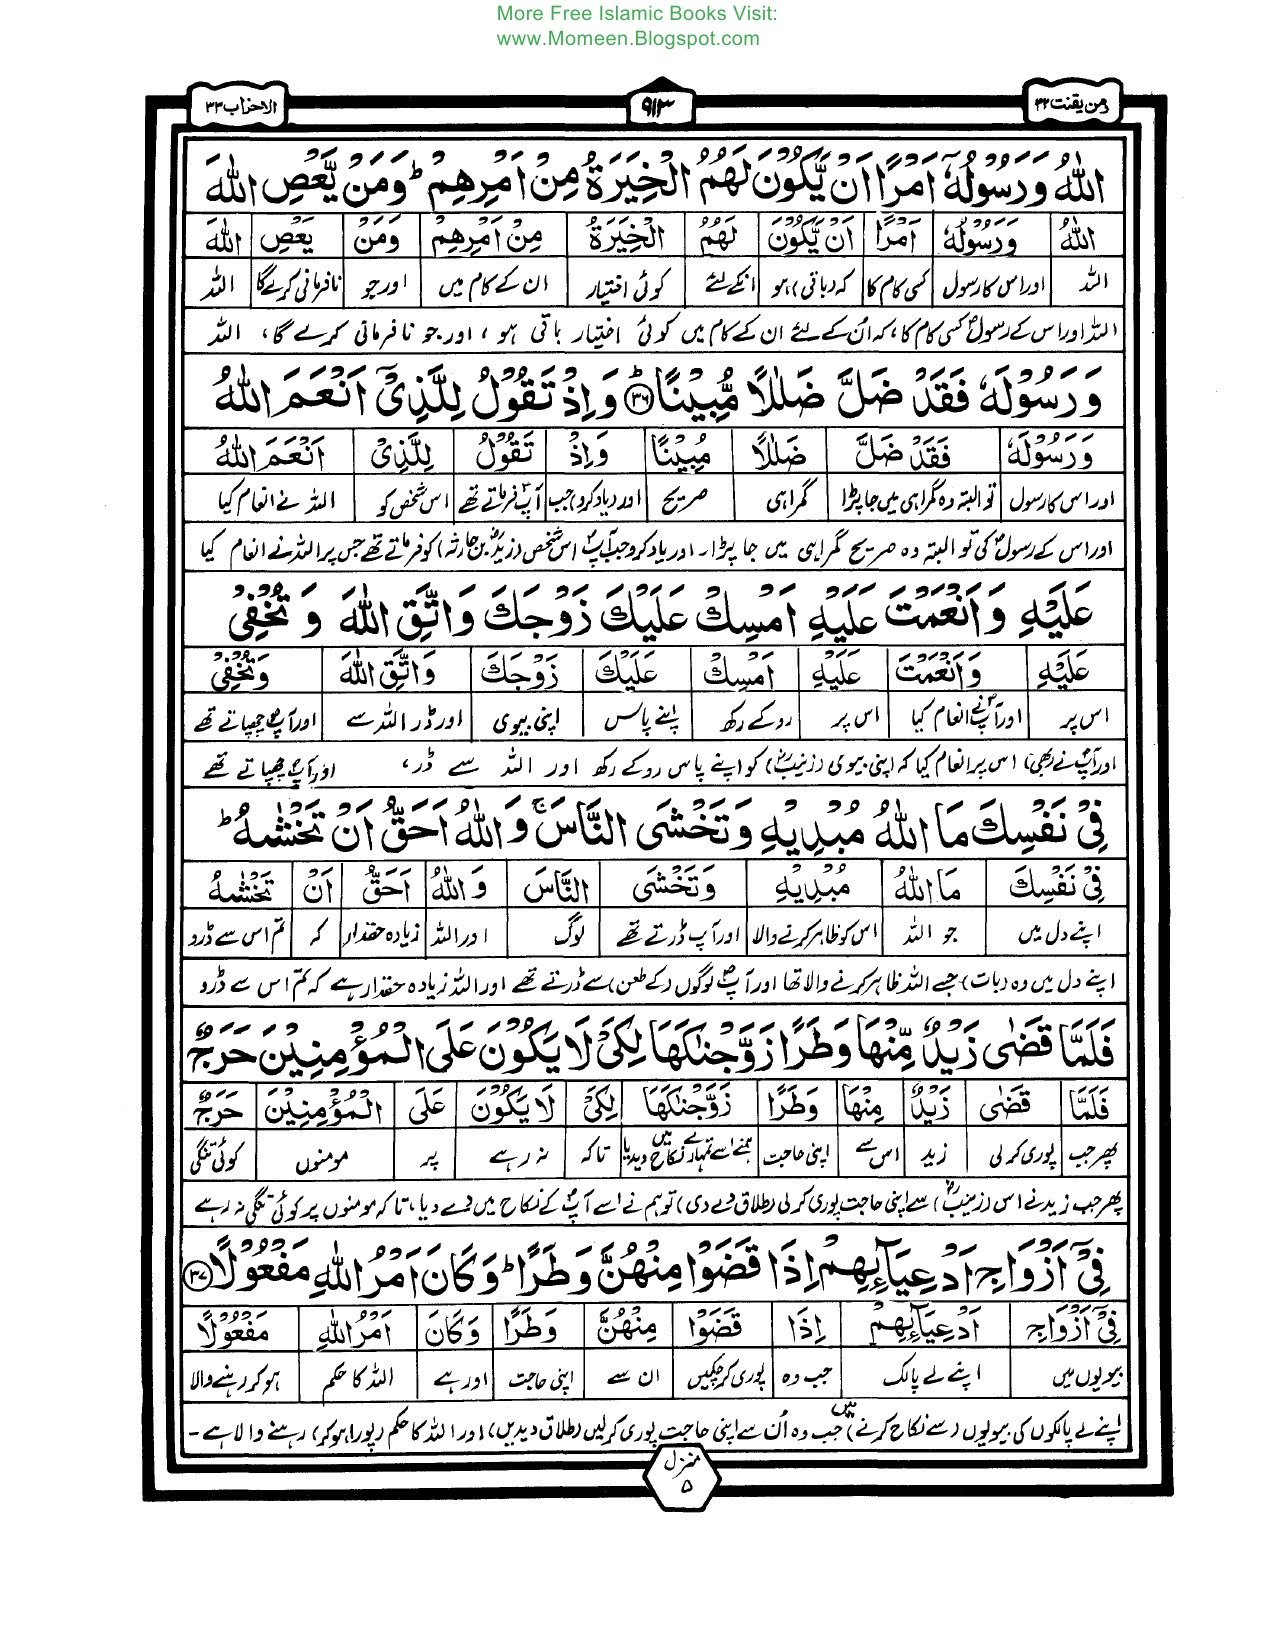 More Free Islamic Books Visit:
www.Momeen.Blogspot.com
ومن یقنت ۲۲ ۹۱۳ الاحزاب ۳۳
اللّٰهُ وَرَسُوْلُهٗٓ اَمْرًا اَنْ يَّكُوْنَ لَهُمُ الْخِيَرَةُ مِنْ اَمْرِهِمْ ؕ وَمَنْ يَّعْصِ اللّٰهَ
اللّٰهُ وَرَسُوْلُهٗ اَمْرًا اَنْ يَّكُوْنَ لَهُمُ الْخِيَرَةُ مِنْ اَمْرِهِمْ وَمَنْ يَعْصِ اللّٰهَ
اللہ اور اس کا رسول کسی کام کا کہ (باقی) ہو انکے لئے کوئی اختیار ان کے کام میں اور جو نافرمانی کرے گا اللہ
اللہ اور اس کے رسولؐ کسی کام کا، کہ اُن کے لئے ان کے کام میں کوئی اختیار باقی ہو، اور جو نافرمانی کرے گا، اللہ
وَرَسُوْلَهٗ فَقَدْ ضَلَّ ضَلٰلًا مُّبِيْنًا ؕ ۳۶ وَاِذْ تَقُوْلُ لِلَّذِيْٓ اَنْعَمَ اللّٰهُ
وَرَسُوْلَهٗ فَقَدْ ضَلَّ ضَلٰلًا مُبِيْنًا وَاِذْ تَقُوْلُ لِلَّذِيْ اَنْعَمَ اللّٰهُ
اور اس کا رسول تو البتہ وہ گمراہی میں جا پڑا گمراہی صریح اور (یاد کرو) جب آپؐ فرماتے تھے اس شخص کو اللہ نے انعام کیا
اور اس کے رسولؐ کی تو البتہ وہ صریح گمراہی میں جا پڑا۔ اور یاد کرو جب آپؐ اس شخص (زیدؓ بن حارثہ) کو فرماتے تھے جس پر اللہ نے انعام کیا
عَلَيْهِ وَاَنْعَمْتَ عَلَيْهِ اَمْسِكْ عَلَيْكَ زَوْجَكَ وَاتَّقِ اللّٰهَ وَتُخْفِيْ
عَلَيْهِ وَاَنْعَمْتَ عَلَيْهِ اَمْسِكْ عَلَيْكَ زَوْجَكَ وَاتَّقِ اللّٰهَ وَتُخْفِيْ
اس پر اور آپؐ نے انعام کیا اس پر روکے رکھ اپنے پاس اپنی بیوی اور ڈر اللہ سے اور آپؐ چھپاتے تھے
اور آپؐ نے (بھی) اس پر انعام کیا کہ اپنی بیوی (زینبؓ) کو اپنے پاس روکے رکھ اور اللہ سے ڈر، اور آپؐ چھپاتے تھے
فِيْ نَفْسِكَ مَا اللّٰهُ مُبْدِيْهِ وَتَخْشَى النَّاسَ ۚ وَاللّٰهُ اَحَقُّ اَنْ تَخْشٰىهُ ؕ
فِيْ نَفْسِكَ مَا اللّٰهُ مُبْدِيْهِ وَتَخْشَى النَّاسَ وَاللّٰهُ اَحَقُّ اَنْ تَخْشٰىهُ
اپنے دل میں جو اللہ اس کو ظاہر کرنے والا اور آپ ڈرتے تھے لوگ اور اللہ زیادہ حقدار کہ تم اس سے ڈرو
اپنے دل میں وہ (بات) جسے اللہ ظاہر کرنے والا تھا اور آپؐ لوگوں (کے طعن) سے ڈرتے تھے اور اللہ زیادہ حقدار ہے کہ تم اس سے ڈرو
فَلَمَّا قَضٰى زَيْدٌ مِّنْهَا وَطَرًا زَوَّجْنٰكَهَا لِكَيْ لَا يَكُوْنَ عَلَى الْمُؤْمِنِيْنَ حَرَجٌ
فَلَمَّا قَضٰى زَيْدٌ مِنْهَا وَطَرًا زَوَّجْنٰكَهَا لِكَيْ لَا يَكُوْنَ عَلَى الْمُؤْمِنِيْنَ حَرَجٌ
پھر جب پوری کر لی زید اس سے اپنی حاجت ہم نے اسے تمہارے نکاح میں دیدیا تاکہ نہ رہے پر مومنوں کوئی تنگی
پھر جب زید نے اس (زینبؓ) سے اپنی حاجت پوری کر لی (طلاق دے دی) تو ہم نے اسے آپؐ کے نکاح میں دے دیا، تاکہ مومنوں پر کوئی تنگی نہ رہے
فِيْٓ اَزْوَاجِ اَدْعِيَآئِهِمْ اِذَا قَضَوْا مِنْهُنَّ وَطَرًا ؕ وَكَانَ اَمْرُ اللّٰهِ مَفْعُوْلًا ۳۷
فِيْٓ اَزْوَاجِ اَدْعِيَآئِهِمْ اِذَا قَضَوْا مِنْهُنَّ وَطَرًا وَكَانَ اَمْرُ اللّٰهِ مَفْعُوْلًا
بیویوں میں اپنے لے پالک جب وہ پوری کر چکیں ان سے اپنی حاجت اور ہے اللہ کا حکم ہو کر رہنے والا
اپنے لے پالکوں کی بیویوں (سے نکاح کرنے) میں جب وہ اُن سے اپنی حاجت پوری کر لیں (طلاق دیدیں) اور اللہ کا حکم (پورا ہو کر) رہنے والا ہے۔
منزل ۵